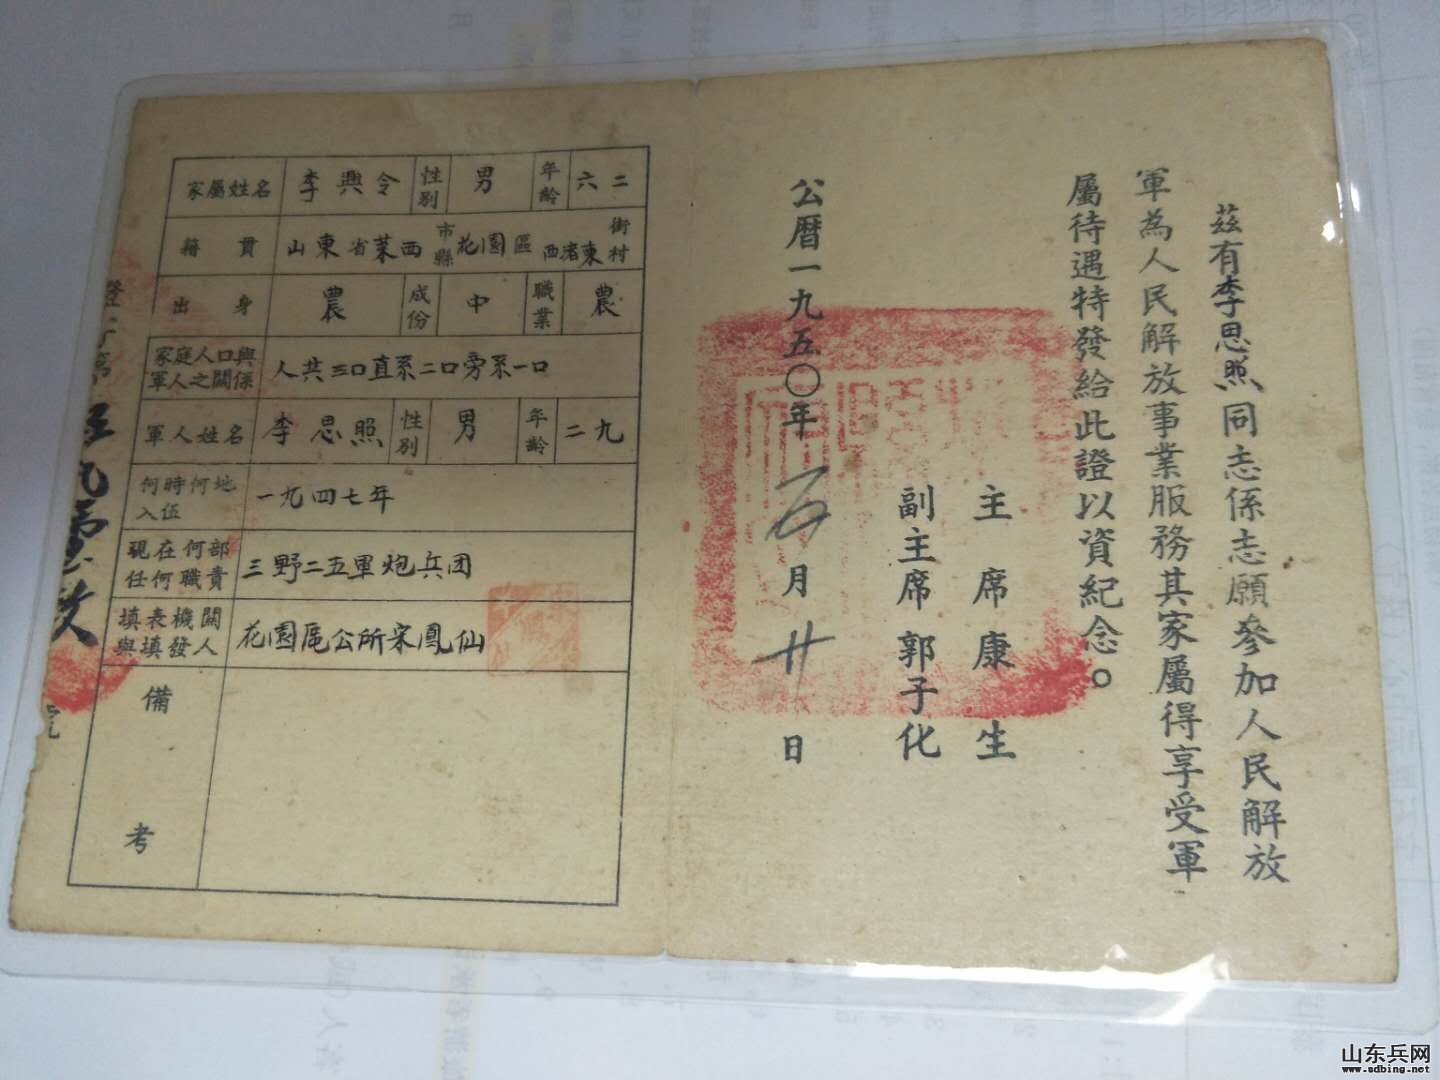 茲有李思照同志係志願參加人民解放
軍為人民解放事業服務其家屬得享受軍
屬待遇特發給此證以資紀念。
主席康生
副主席郭子化
公曆一九五〇年一月廿日
家屬姓名 李興令 性別 男 年齡 六二
籍貫 山東省萊西市縣花園區西渚東街村
出身 農 成份 中 職業 農
家庭人口與軍人之關係 人共三口直系二口旁系一口
軍人姓名 李思照 性別 男 年齡 二九
何時何地入伍 一九四七年
現在何部任何職責 三野二五軍炮兵团
填表機關與填發人 花園區公所宋鳳仙
備考
證字第
號
山东兵网
www.sdbing.net